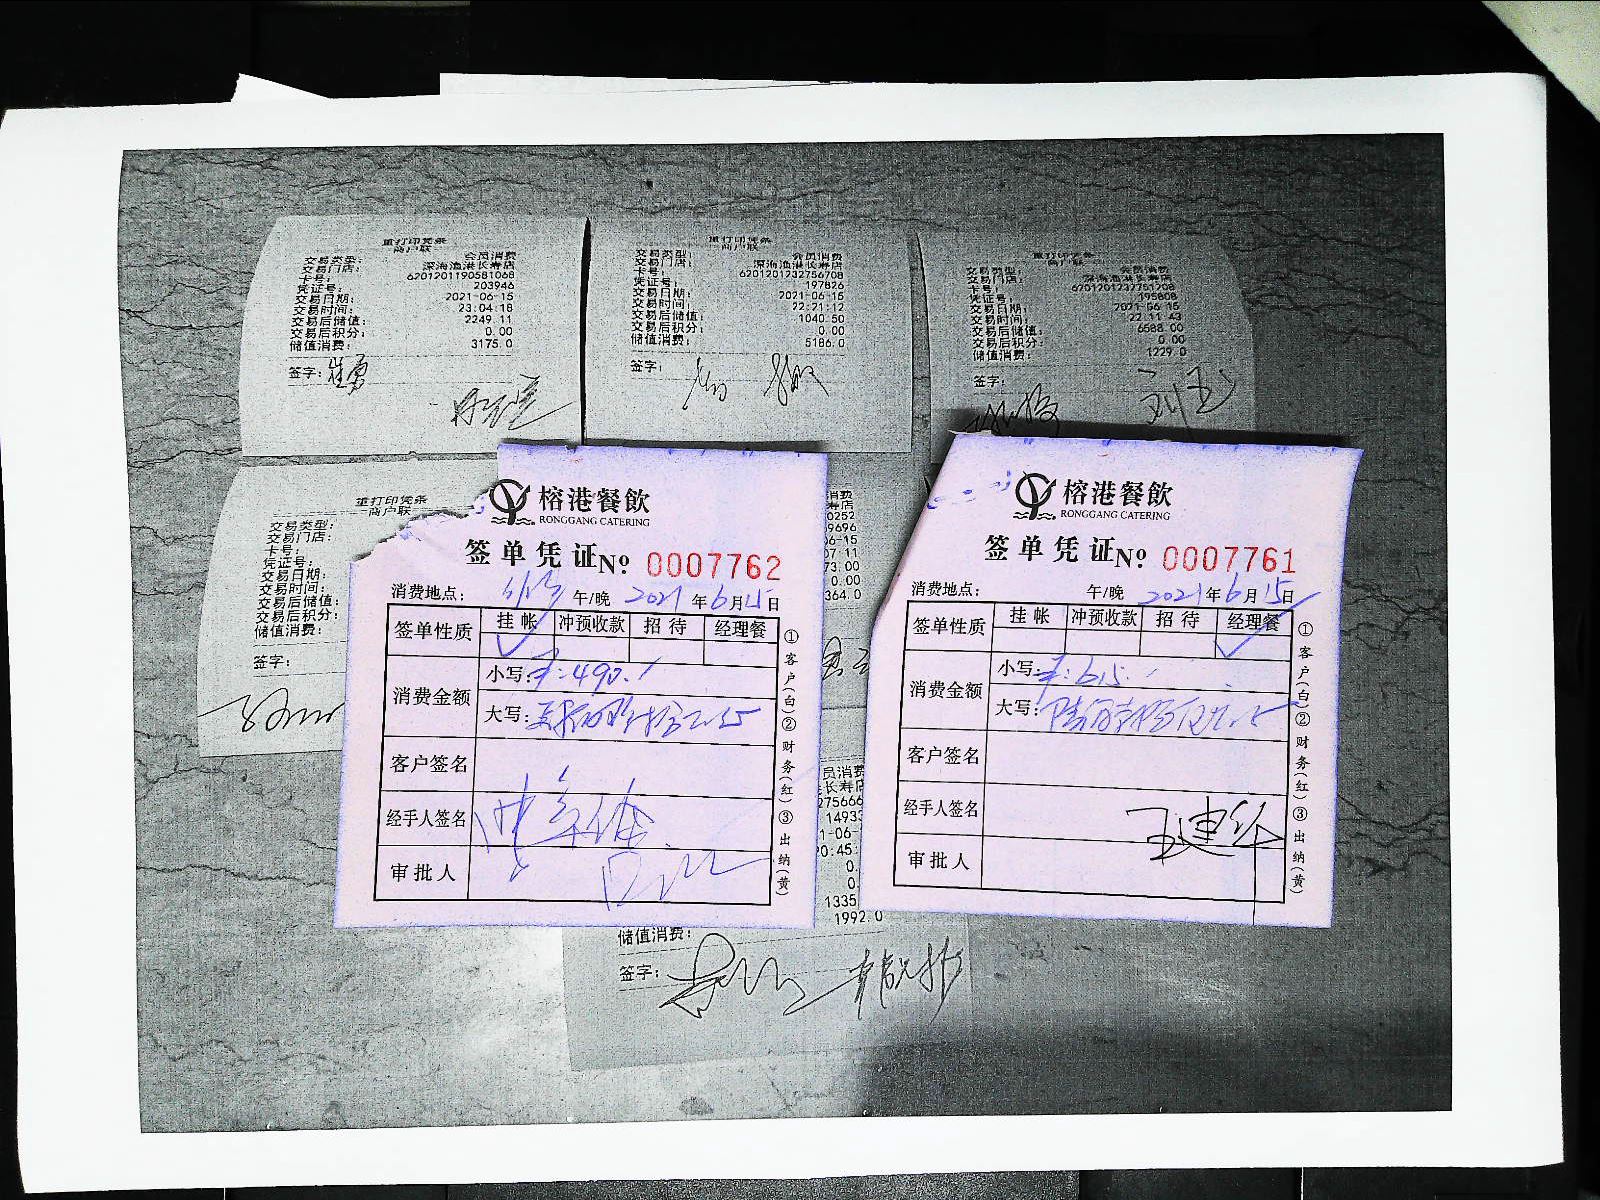 重打印凭条
商户联
交易类型： 会员消费
交易门店： 深海渔港长寿店
卡号： 6201201190581068
凭证号： 203946
交易日期： 2021-06-15
交易时间： 23:04:18
交易后储值： 2249.11
交易后积分： 0.00
储值消费： 3175.0
签字：
重打印凭条
商户联
交易类型： 会员消费
交易门店： 深海渔港长寿店
卡号： 6201201232756708
凭证号： 197826
交易日期： 2021-06-15
交易时间： 22:21:12
交易后储值： 1040.50
交易后积分： 0.00
储值消费： 5186.0
签字：
重打印凭条
商户联
交易类型： 会员消费
交易门店： 深海渔港长寿店
卡号：
凭证号： 195808
交易日期： 2021-06-15
交易时间： 22:11:43
交易后储值： 6588.00
交易后积分： 0.00
储值消费： 1229.0
签字：
重打印凭条
商户联
交易类型：
交易门店：
卡号：
凭证号：
交易日期：
交易时间：
交易后储值：
交易后积分：
储值消费：
签字：
消费
寿店
0252
9696
06-15
07 11
73.00
0.00
364.0
榕港餐飲
RONGGANG CATERING
签单凭证 No 0007762
消费地点： 午/晚 2021年6月15日
签单性质 挂帐 冲预收款 招待 经理餐
消费金额 小写：¥：490.
大写：
客户签名
经手人签名
审批人
①客户(白)②财务(红)③出纳(黄)
榕港餐飲
RONGGANG CATERING
签单凭证 No 0007761
消费地点： 午/晚 2021年6月15日
签单性质 挂帐 冲预收款 招待 经理餐
消费金额 小写：¥：615.
大写：
客户签名
经手人签名
审批人
①客户(白)②财务(红)③出纳(黄)
员消费
长寿店
275666
1493
1-06-
0:45:
0.
0.
1335
1992.0
储值消费：
签字：